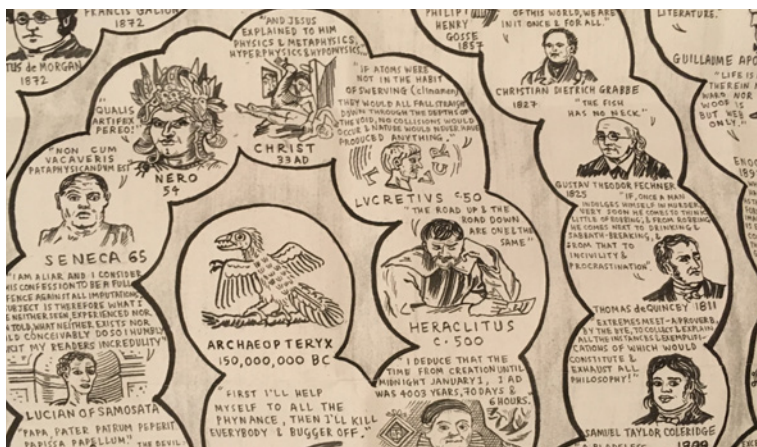 FRANCIS GALTON
1872
TUS de MORGAN
1872
"QUALIS
ARTIFEX
PEREO!"
NERO
54
"NON CUM
VACAVERIS
PATAPHYSICANDUM EST"
SENECA 65
"I AM A LIAR AND I CONSIDER
HIS CONFESSION TO BE A FULL
FENCE AGAINST ALL IMPUTATIONS
UBJECT IS THEREFORE WHAT I
E NEITHER SEEN, EXPERIENCED NOR
N TOLD, WHAT NEITHER EXISTS NOR
LD CONCEIVABLY DO SO I HUMBLY
MY READERS INCREDULITY"
LUCIAN OF SAMOSATA
"PAPA, PATER PATRUM PEPERIT
PAPISSA PAPELLUM." THE DEVIL-
"AND JESUS
EXPLAINED TO HIM
PHYSICS & METAPHYSICS,
HYPERPHYSICS & HYPOPHYSICS"
CHRIST
33 AD
"IF ATOMS WERE
NOT IN THE HABIT
OF SWERVING (clinamen)
THEY WOULD ALL FALL STRAIGHT
DOWN THROUGH THE DEPTHS OF
THE VOID, NO COLLISIONS WOULD
OCCUR & NATURE WOULD NEVER HAVE
PRODUCED ANYTHING."
LVCRETIVS c.50
"THE ROAD UP & THE
ROAD DOWN
ARE ONE & THE
SAME"
HERACLITUS
c.500
I DEDUCE THAT THE
TIME FROM CREATION UNTIL
MIDNIGHT JANUARY 1, 1 AD
WAS 4003 YEARS, 70 DAYS &
6 HOURS.
ARCHAEOPTERYX
150,000,000 BC
"FIRST I'LL HELP
MYSELF TO ALL THE
PHYNANCE, THEN I'LL KILL
EVERYBODY & BUGGER OFF."
PHILIP
HENRY
GOSSE
1857
OF THIS WORLD, WE ARE
IN IT ONCE & FOR ALL."
CHRISTIAN DIETRICH GRABBE
1827
"THE FISH
HAS NO NECK."
GUSTAV THEODOR FECHNER
1825
"IF, ONCE A MAN
INDULGES HIMSELF IN MURDER,
VERY SOON HE COMES TO THINK
LITTLE OF ROBBING, & FROM ROBBING
HE COMES NEXT TO DRINKING &
SABBATH-BREAKING, &
FROM THAT TO
INCIVILITY &
PROCRASTINATION."
THOMAS deQUINCEY 1811
"EXTREMES MEET - APROVERB,
BY THE BYE, TO COLLECT & EXPLAIN
ALL THE INSTANCES & EXEMPLIFI-
CATIONS OF WHICH WOULD
CONSTITUTE &
EXHAUST ALL
PHILOSOPHY!"
SAMUEL TAYLOR COLERIDGE
LITERATURE.
GUILLAUME APO
"LIFE IS
THEREIN
WARD NOR
WOOF IS
BUT WEB
ONLY."